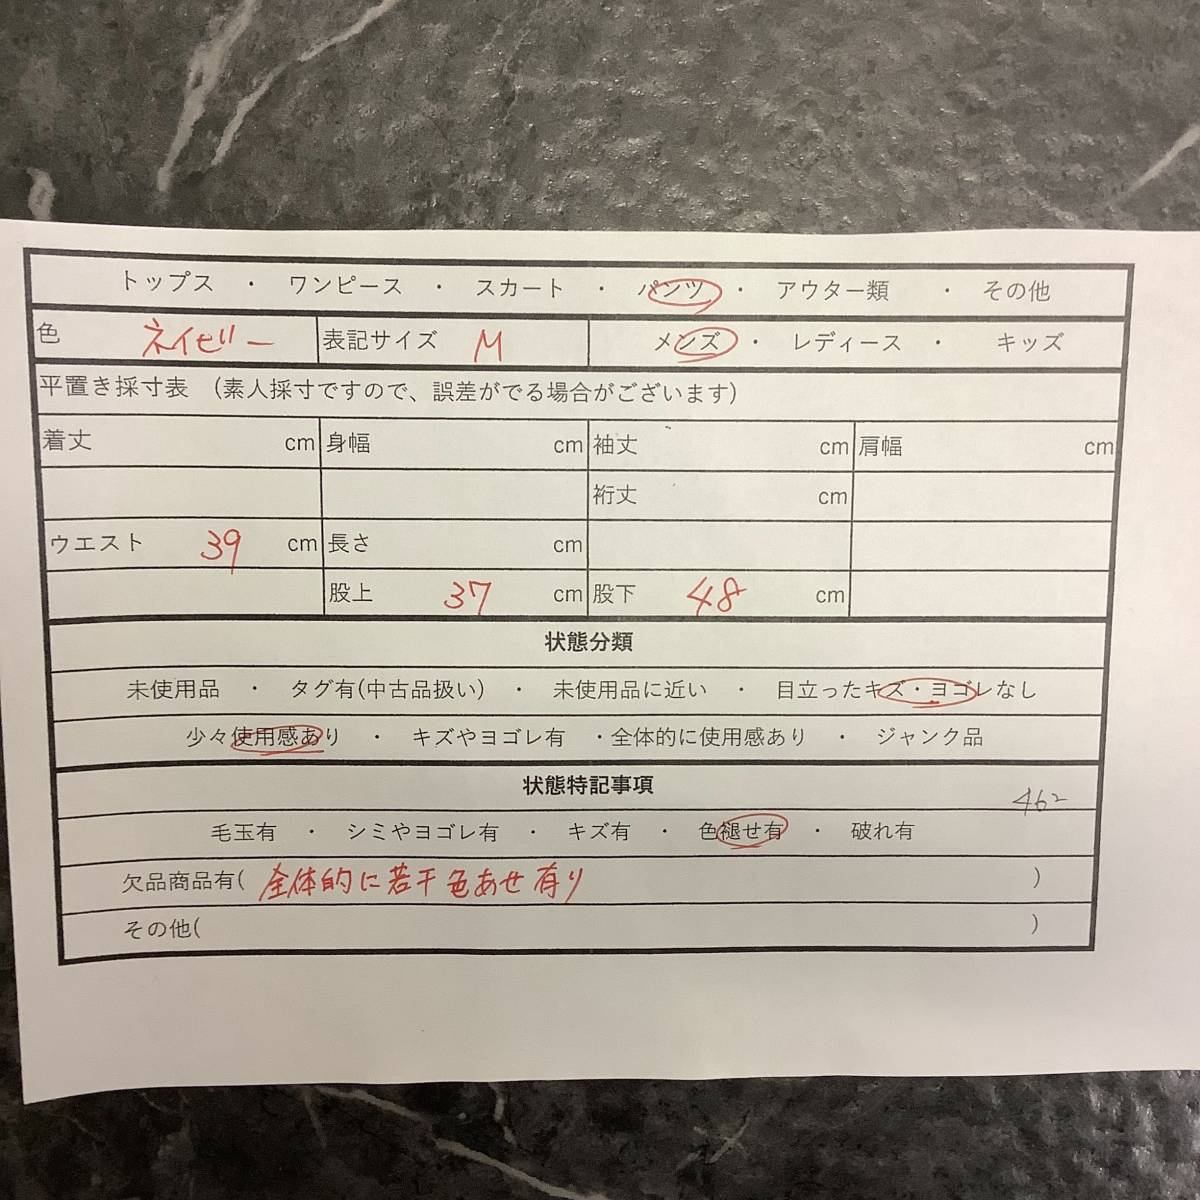 トップス ・ ワンピース ・ スカート ・ パンツ ・ アウター類 ・ その他
色 ネイビー 表記サイズ M メンズ ・ レディース ・ キッズ
平置き採寸表 (素人採寸ですので、誤差がでる場合がございます)
着丈 cm 身幅 cm 袖丈 cm 肩幅 cm
裄丈 cm
ウエスト 39 cm 長さ cm
股上 37 cm 股下 48 cm
状態分類
未使用品 ・ タグ有(中古品扱い) ・ 未使用品に近い ・ 目立ったキズ・ヨゴレなし
少々使用感あり ・ キズやヨゴレ有 ・全体的に使用感あり ・ ジャンク品
状態特記事項
462
毛玉有 ・ シミやヨゴレ有 ・ キズ有 ・ 色褪せ有 ・ 破れ有
欠品商品有( 全体的に若干色あせ有り )
その他( )